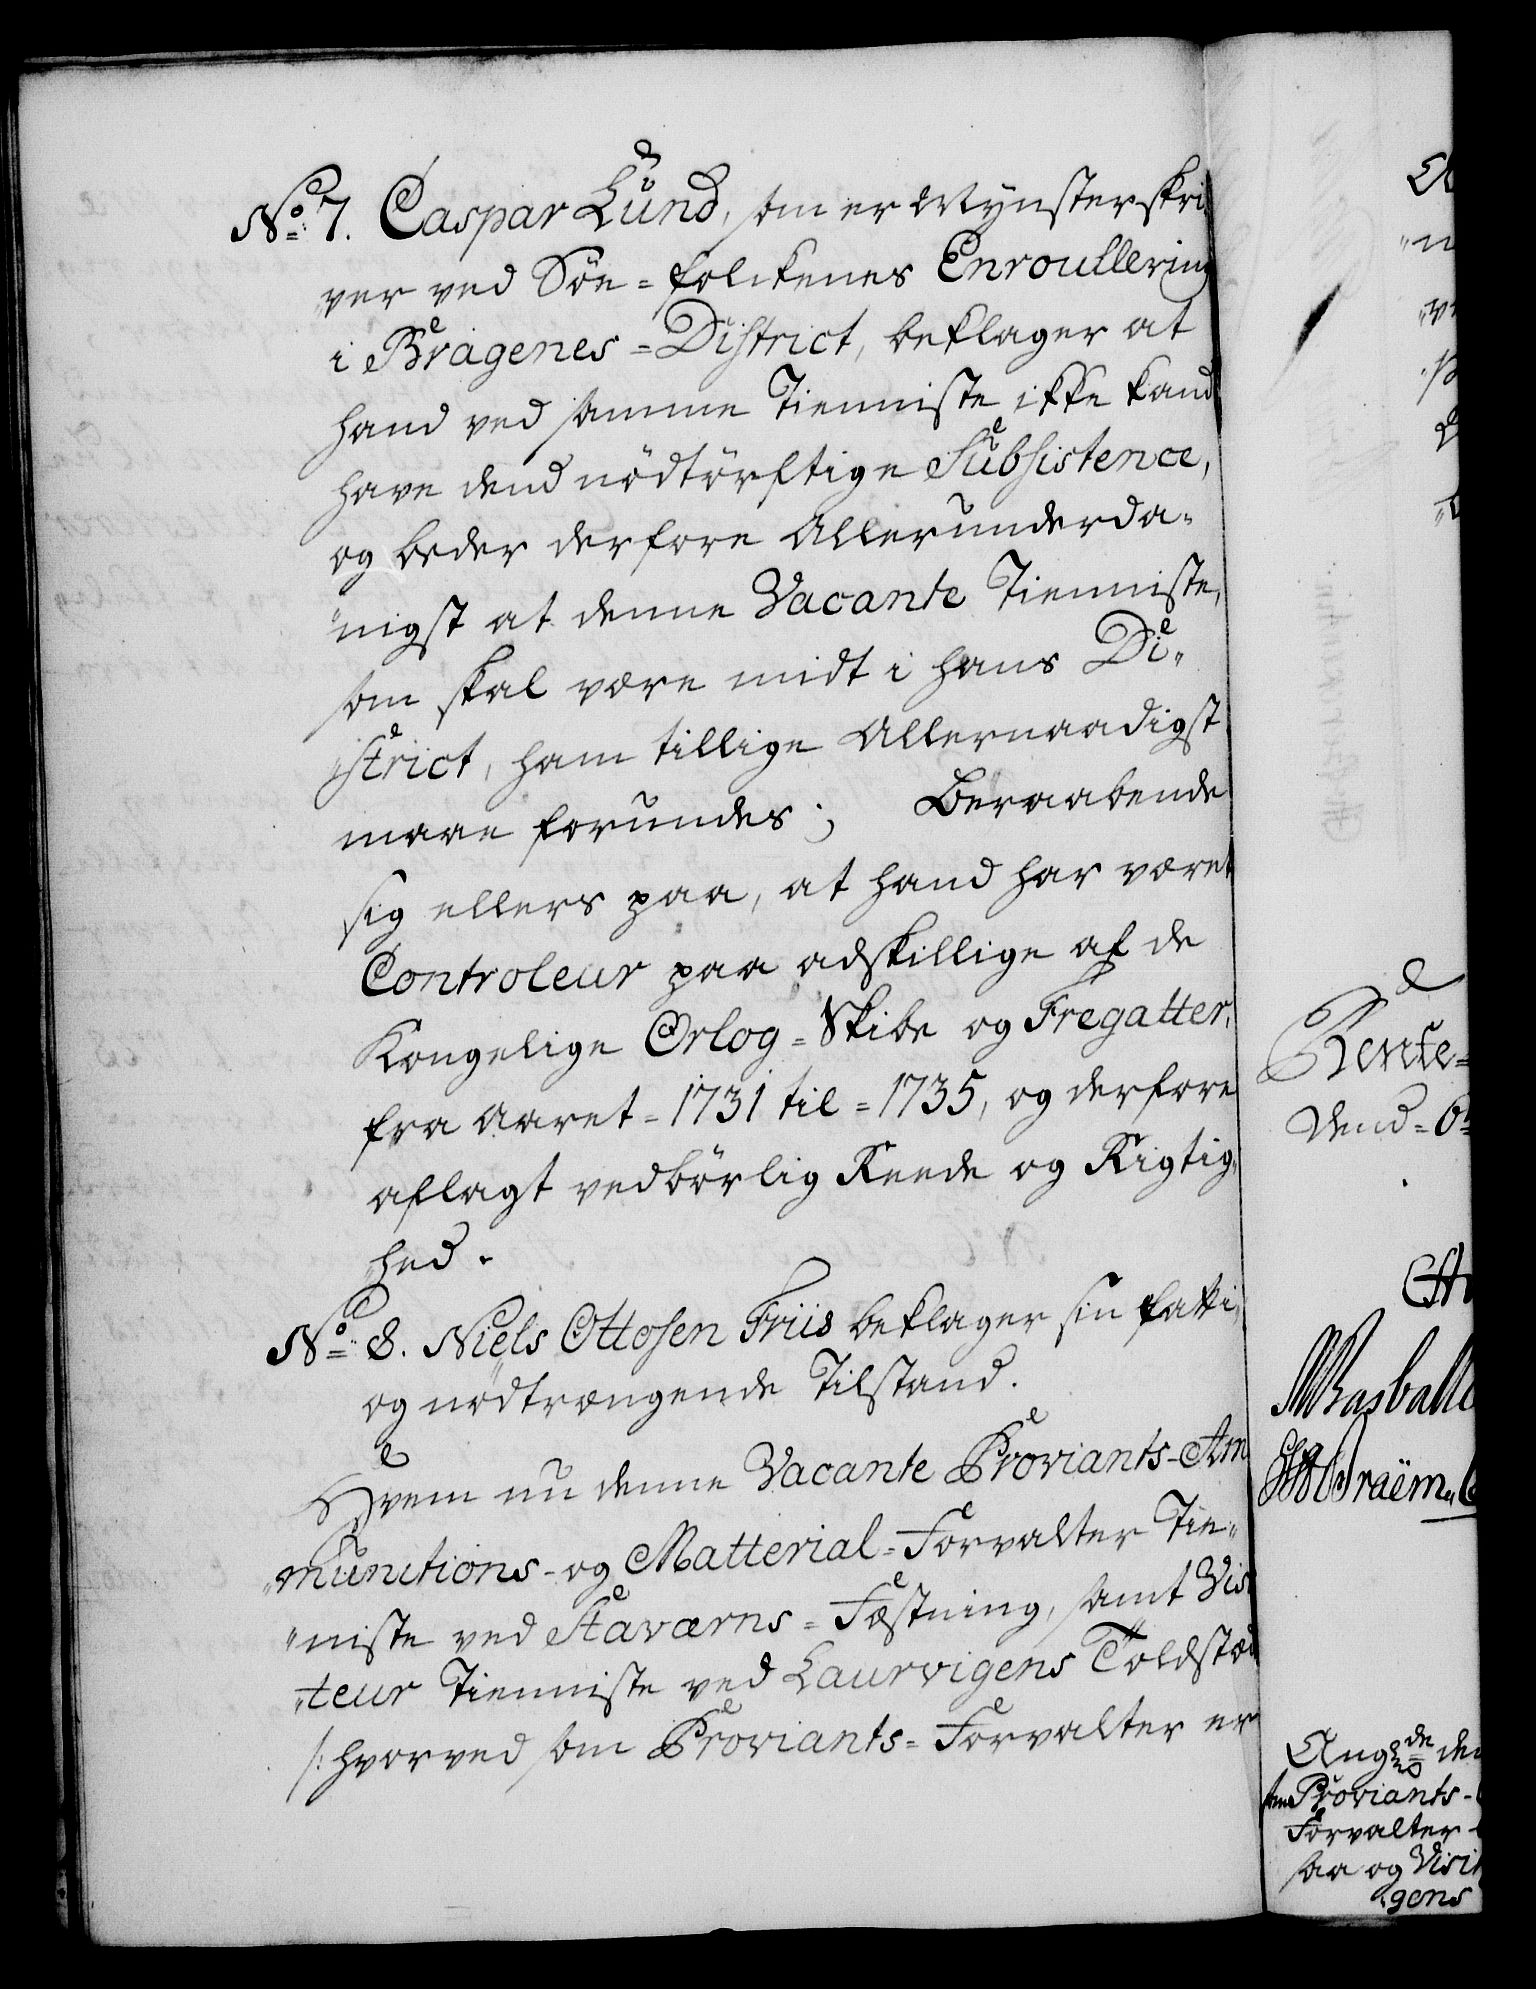 No: 7. Caspar Lund, som er Mynsterskri
ver ved Söe=folckenes Enroullering
i Bragenes=District, beklager at
hand ved samme Tienniste ikke kand
have dend nödtörftige Subsistence,
og beder derfore Allerunderda-
"nigst at denne Vacante Tienniste,
som skal være midt i hans Di"
"strict, ham tillige Allernaadigst
maae forundes; Beraabende
sig ellers paa, at hand har været
Controleur paa adskillige af de
Kongelige Orlog=Skibe og Fregatter,
fra Aaret=1731 til=1735, og derfore
aflagt vedbörlig Reede og Rigtig"
"hed.
No: 8. Niels Ottosen Friis beklager sin fatti,
og nödtrængende Tilstand.
Hvem nu denne Vacante Proviants-Am
"munitions-og Matterial=Forvalter Tie"
"niste ved Staværns=Fæstning, samt Visi
"teur Tienniste ved Laurvigens Toldstæd
/: hvorved som Proviants=Forvalter er
Rente=
dend=6
de den
Proviants-
Forvalter
saa og Visi
gens